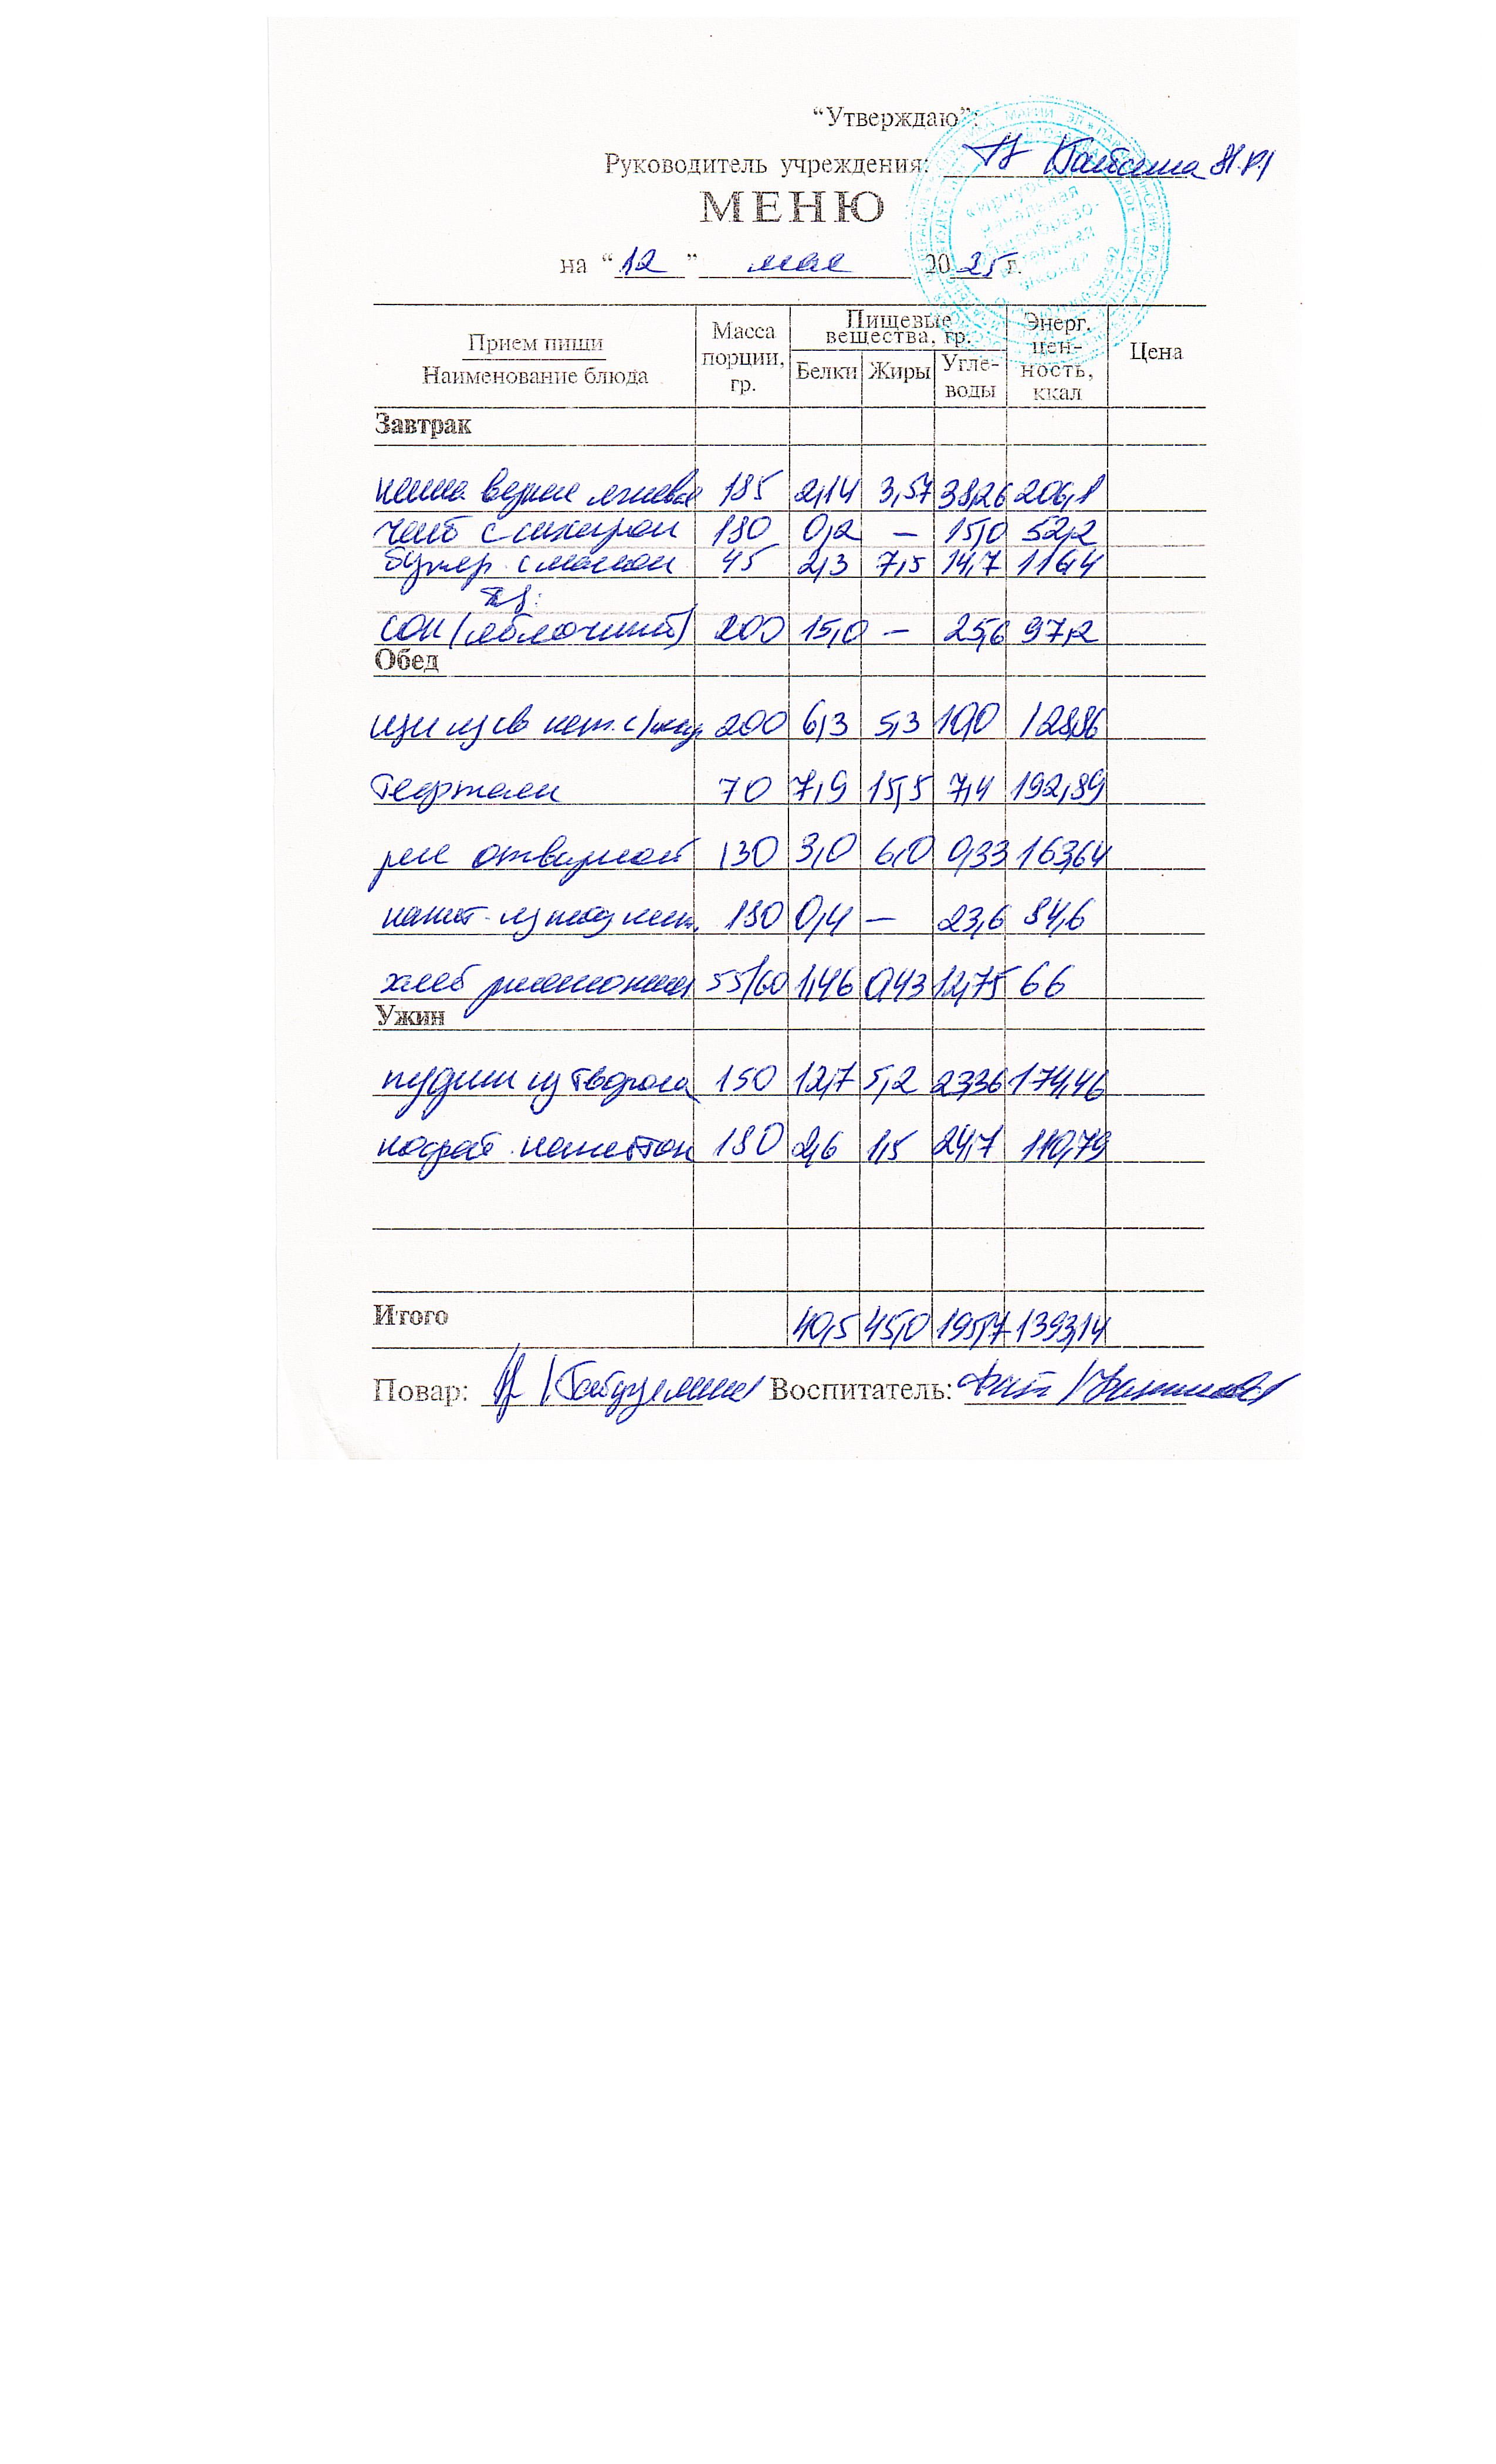 “Утверждаю”:
Руководитель учреждения:
МЕНЮ
на “12” мая 2025 г.
Прием пищи Наименование блюда Масса порции, гр. Пищевые вещества, гр. Белки Жиры Угле-воды Энерг. цен-ность, ккал Цена
Завтрак
каша 185 2,14 3,57 38,26 206,1
чай с сахаром 180 0,2 — 15,0 52,2
бутер. с маслом 45 2,3 7,5 14,7 116,4
сок (яблочный) 200 15,0 — 25,6 97,2
Обед
щи из св кап. с/ 200 6,3 5,3 10,0 128,86
тефтели 70 7,9 15,5 7,4 192,89
рис отварной 130 3,0 6,0 0,33 163,64
180 0,4 — 23,6 84,6
хлеб 55/60 1,46 0,43 12,75 66
Ужин
пудинг из творога 150 12,7 5,2 23,36 174,46
180 2,6 1,5 24,7 110,79
Итого 40,5 45,0 195,7 1393,14
Повар: Воспитатель: